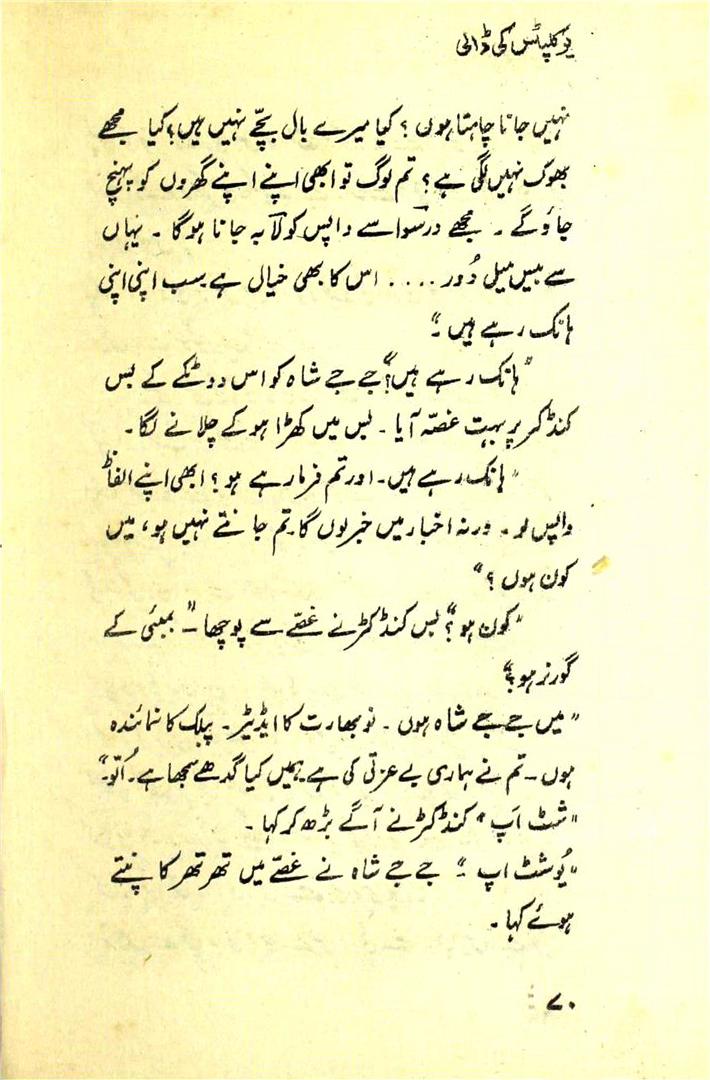 یوکلپٹس کی ڈالی
نہیں جانا چاہتا ہوں ؟ کیا میرے بال بچّے نہیں ہیں؟ کیا مجھے
بھوک نہیں لگی ہے ؟ تم لوگ تو ابھی اپنے اپنے گھروں کو پہنچ
جاؤ گے ۔ مجھے درسوا سے واپس کولابہ جانا ہوگا ۔ یہاں
سے بیس میل دُور .... اس کا بھی خیال ہے سب اپنی اپنی
ہانک رہے ہیں ۔"
"ہانک رہے ہیں؟" جے جے شاہ کو اس دو ٹکے کے بس
کنڈکٹر پر بہت غصّہ آیا ۔ بس میں کھڑا ہو کے چلانے لگا ۔
"ہانک رہے ہیں ۔ اور تم فرما رہے ہو ؟ ابھی اپنے الفاظ
واپس لو ۔ ورنہ اخبار میں خبر لوں گا ۔ تم جانتے نہیں ہو ، میں
کون ہوں ؟"
"کون ہو ؟" بس کنڈکٹر نے غصّے سے پوچھا ۔ "بمبئی کے
گورنر ہو ؟"
"میں جے جے شاہ ہوں ۔ نوبھارت کا ایڈیٹر ۔ پبلک کا نمائندہ
ہوں ۔ تم نے ہماری بے عزتی کی ہے ہمیں کیا گدھے سمجھا ہے ۔ اُلّو ۔"
"شٹ اَپ" کنڈکٹر نے آگے بڑھ کر کہا ۔
"یُو شٹ اپ ۔" جے جے شاہ نے غصّے میں تھر تھر کانپتے
ہوئے کہا ۔
۷۰